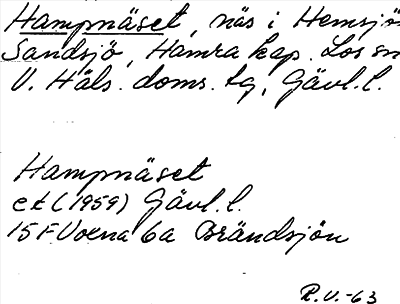 Hampnäset, näs i Hemsjö
Sandsjö, Hamra kap. Los sn
V. Häls. doms. tg, Gävl. l.
Hampnäset
ek (1959) Gävl. l.
15 F Voxna 6a Brändsjön
R.V.-63